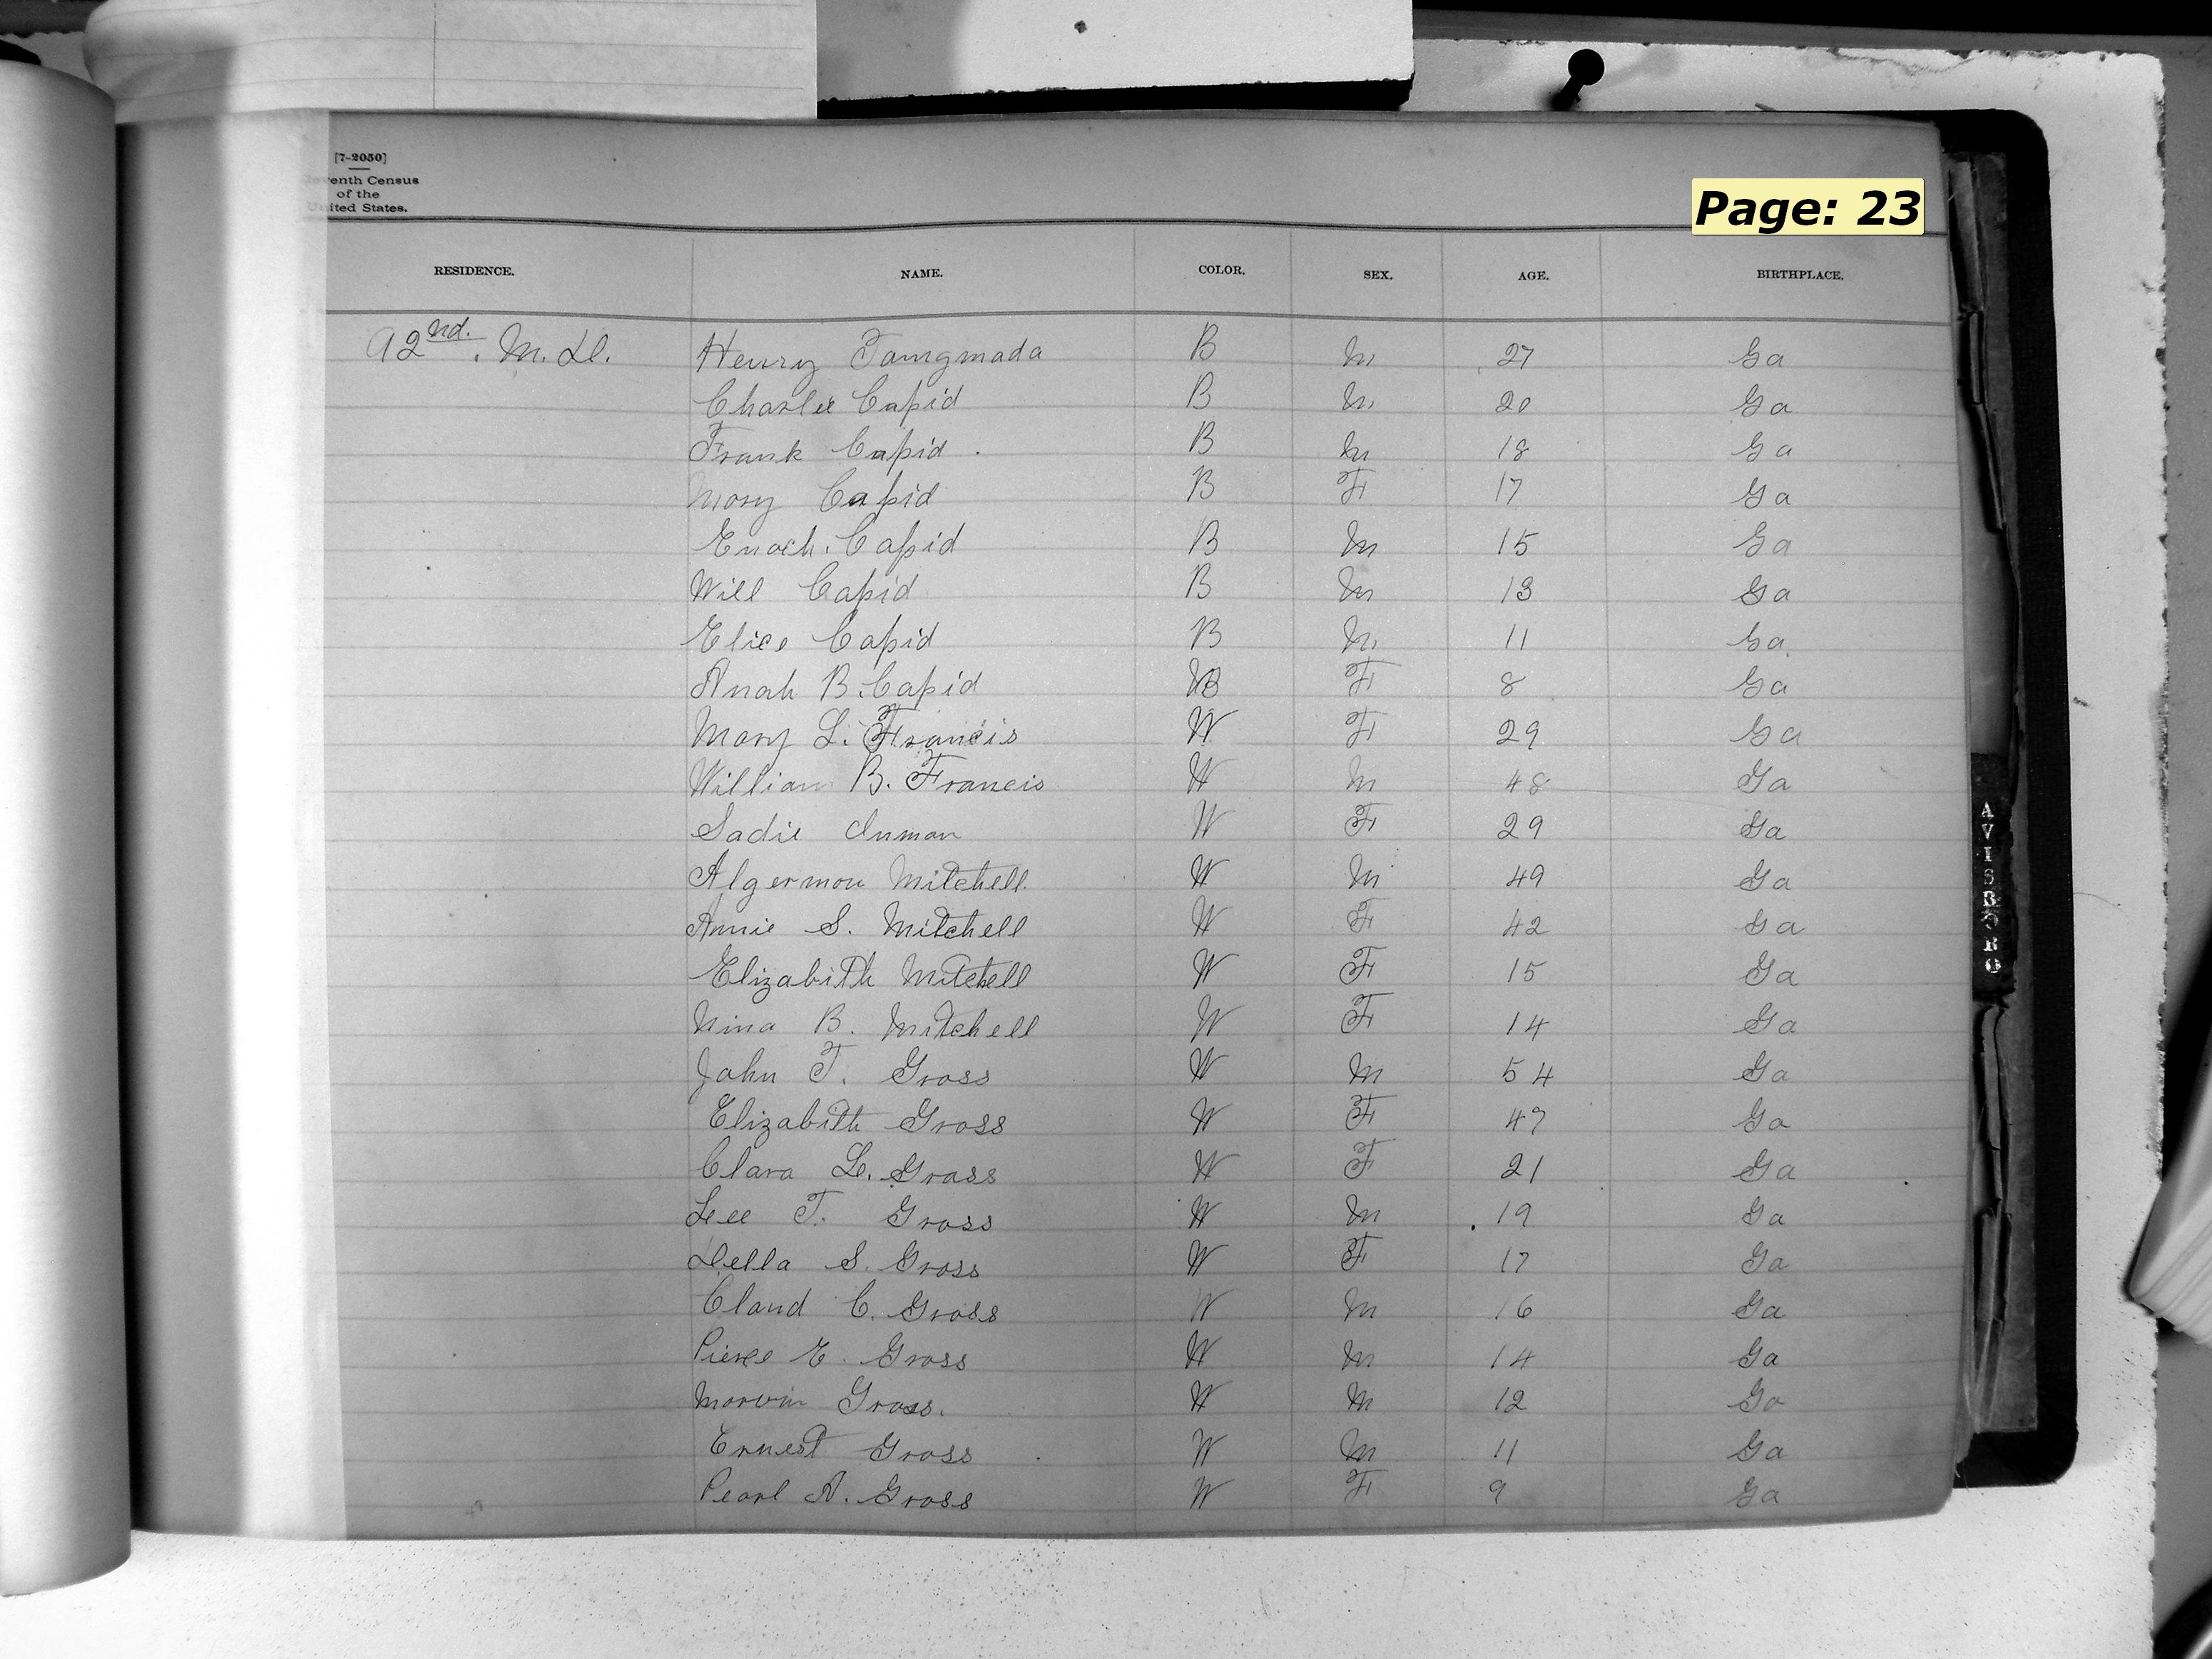 [7-2050]
venth Census
of the
United States.
Page: 23
RESIDENCE. NAME. COLOR. SEX. AGE. BIRTHPLACE.
92nd. M. D. Henry Tamgmada B M 27 Ga
Charlie Capid B M 20 Ga
Frank Capid B M 18 Ga
Mary Capid B F 17 Ga
Enoch Capid B M 15 Ga
Will Capid B M 13 Ga
Elice Capid B M 11 Ga
Anah B. Capid B F 8 Ga
Mary L. Francis W F 29 Ga
William B. Francis W M 48 Ga
Sadie Inman W F 29 Ga
Algermon Mitchell W M 49 Ga
Annie S. Mitchell W F 42 Ga
Elizabith Mitchell W F 15 Ga
Nina B. Mitchell W F 14 Ga
John T. Gross W M 54 Ga
Elizabith Gross W F 47 Ga
Clara L. Gross W F 21 Ga
Lee T. Gross W M 19 Ga
Della S. Gross W F 17 Ga
Claud C. Gross W M 16 Ga
Pierce E. Gross W M 14 Ga
Marvin Gross. W M 12 Ga
Ernest Gross W M 11 Ga
Pearl A. Gross W F 9 Ga
AVISBORO